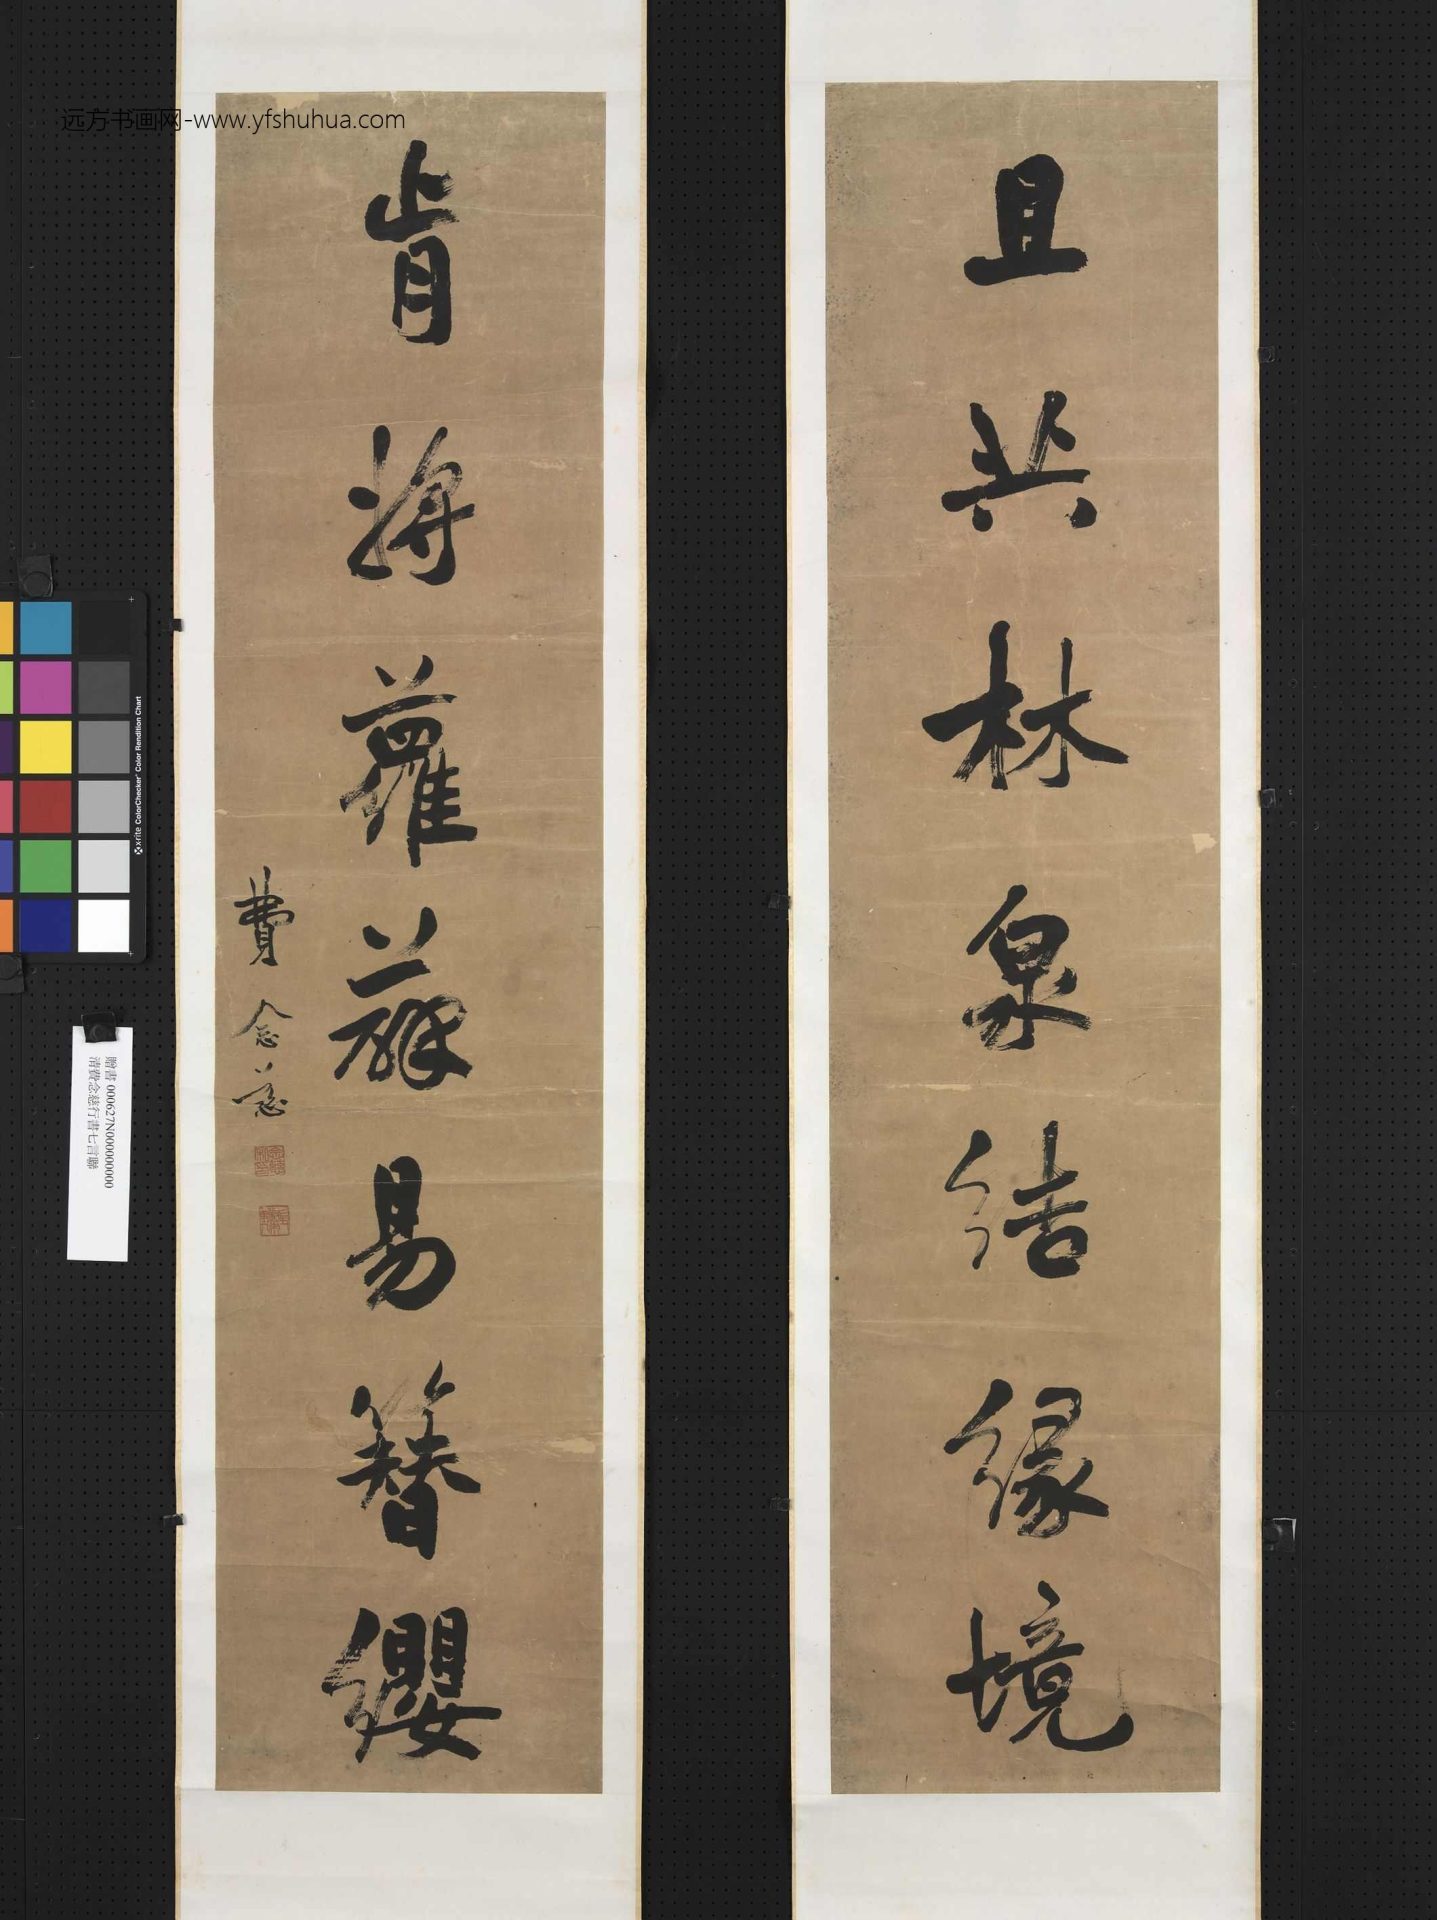 远方书画网-www.yfshuhua.com
且共林泉結緣境
肯將蘿薜易簪纓
費念慈
贈書 000627N000000000
清費念慈行書七言聯
x-rite ColorChecker Color Rendition Chart